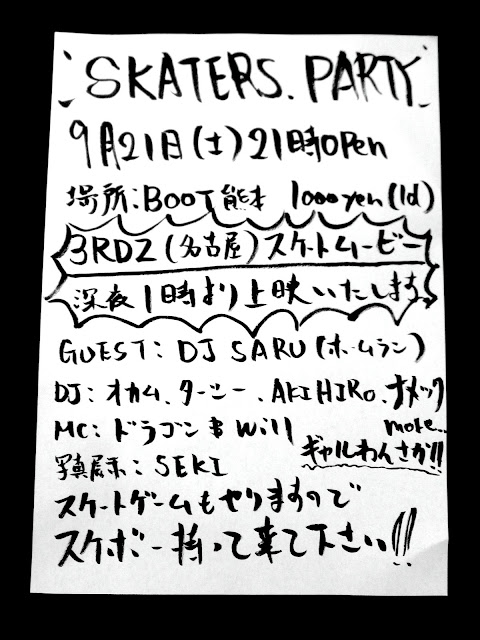 SKATERS. PARTY
9月21日(土)21時OPEN
場所:BOOT熊本 1000yen(1d)
3RDZ(名古屋)スケートムービー
深夜1時より上映いたします。
GUEST: DJ SARU(ホームラン)
DJ: オカム、ターシー、AKIHIRO、ナメック
more..
MC: ドラゴン & Will
ギャルわんさか!!
写真展示: SEKI
スケートゲームもやりますので
スケボー持って来て下さい!!